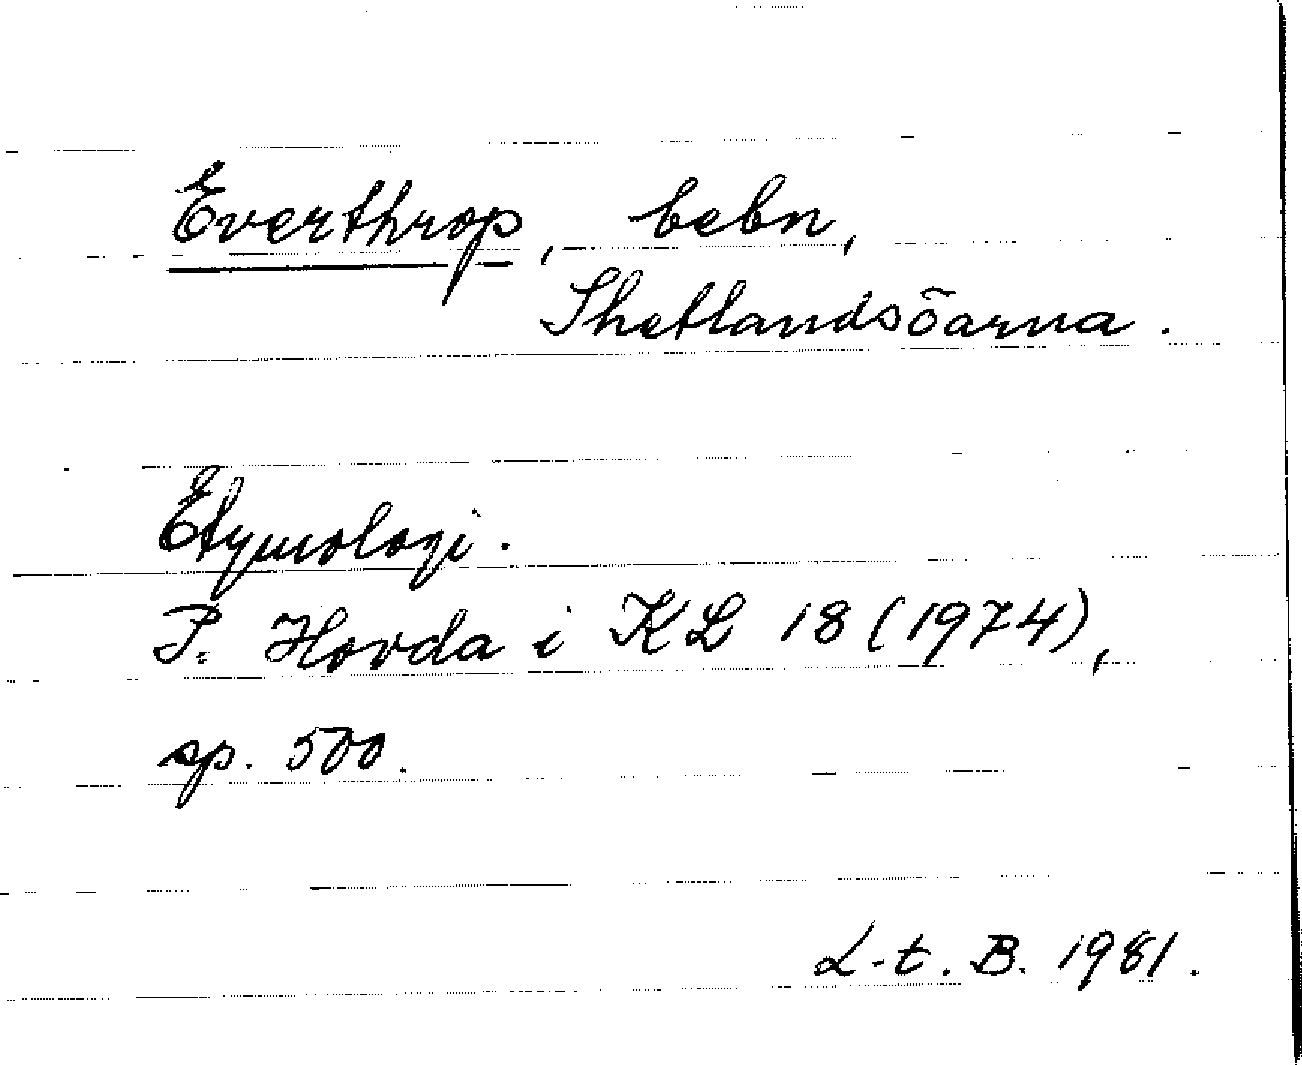 Everthrop, bebn,
Shetlandsöarna.
Etymologi.
P. Hovda i KL 18 (1974),
sp. 500.
L-t. B. 1981.